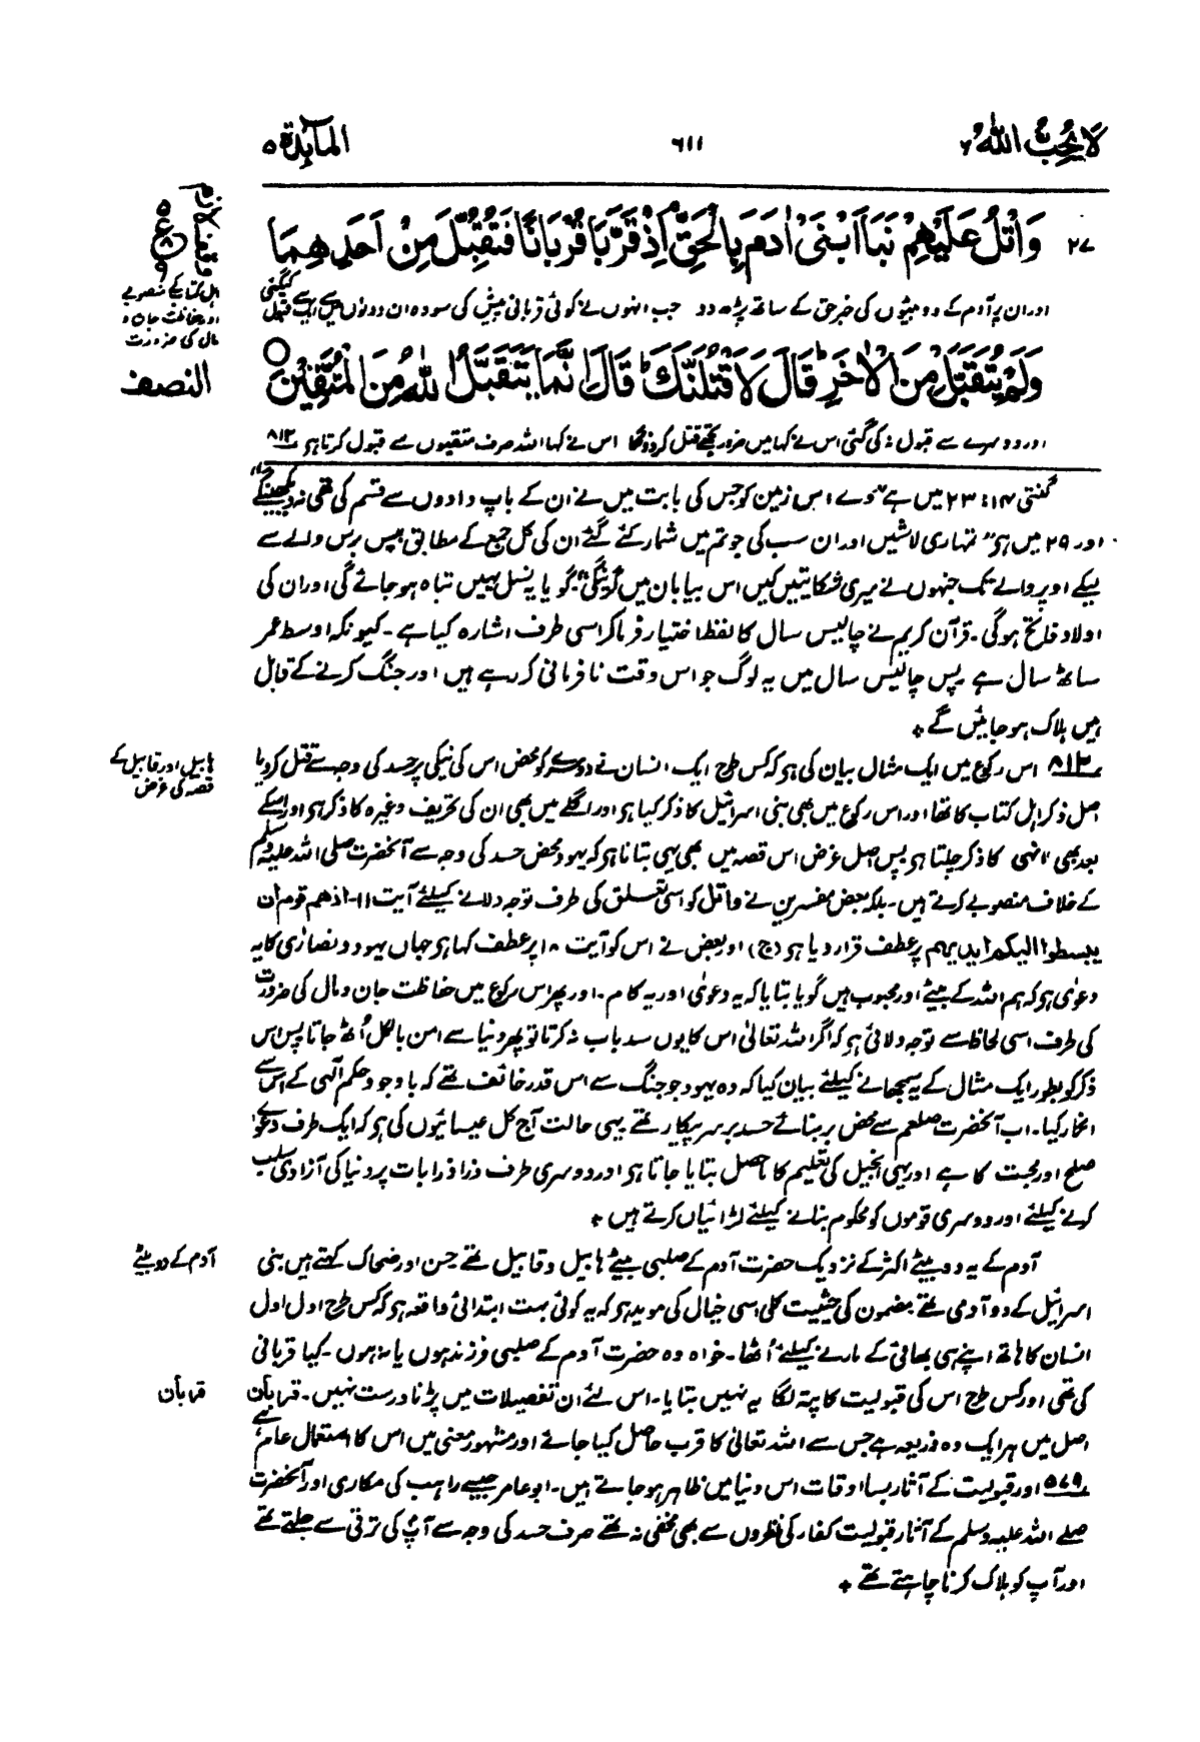 لا يحب الله ٦
٦١١
المآئدة ٥
٢٧ وَاتْلُ عَلَيْهِمْ نَبَاَ ابْنَيْ اٰدَمَ بِالْحَقِّ ۘ اِذْ قَرَّبَا قُرْبَانًا فَتُقُبِّلَ مِنْ اَحَدِهِمَا
اور ان پر آدم کے دو بیٹوں کی خبر حق کے ساتھ پڑھ دو جب انہوں نے کوئی قربانی پیش کی سو وہ ان دونوں میں سے ایک سے قبول کی گئی
وَلَمْ يُتَقَبَّلْ مِنَ الْاٰخَرِ ؕ قَالَ لَاَقْتُلَنَّكَ ؕ قَالَ اِنَّمَا يَتَقَبَّلُ اللّٰهُ مِنَ الْمُتَّقِيْنَ ○
اور دوسرے سے قبول نہ کی گئی اس نے کہا میں ضرور تجھے قتل کردونگا اس نے کہا اللہ صرف متقیوں سے قبول کرتا ہو ٨١٢
اہل کتاب کے منصوبے
اور حفاظت جان و
مال کی ضرورت
النصف
گنتی ١٤: ٢٣ میں ہے "وے اس زمین کو جس کی بابت میں نے ان کے باپ دادوں سے قسم کی تھی نہ دیکھینگے
اور ٢٩ میں ہو "تمہاری لاشیں اور ان سب کی جو تم میں شمار کئے گئے ان کی کل جمع کے مطابق بیس برس والے سے
لیکے اوپر والے تک جنہوں نے میری شکایتیں کیں اس بیابان میں گرینگی" گویا یہ نسل یہیں تباہ ہو جائے گی اور ان کی
اولاد فاتح ہوگی۔ قرآن کریم نے چالیس سال کا لفظ اختیار فرماکر اسی طرف اشارہ کیا ہے۔ کیونکہ اوسط عمر
ساٹھ سال ہے پس چالیس سال میں یہ لوگ جو اس وقت نافرمانی کر رہے ہیں اور جنگ کرنے کے قابل
ہیں ہلاک ہو جائیں گے ٭
ہابیل اور قابیل کے
قصہ کی غرض
٨١٢ اس رکوع میں ایک مثال بیان کی ہو کہ کس طرح ایک انسان نے دوسرے کو محض اس کی نیکی پر حسد کی وجہ سے قتل کردیا
اصل ذکر اہل کتاب کا تھا اور اس رکوع میں بھی بنی اسرائیل کا ذکر کیا ہو اور اگلے میں بھی ان کی تحریف وغیرہ کا ذکر ہو اور اسکے
بعد بھی انہی کا ذکر چلتا ہو پس اصل غرض اس قصہ میں بھی یہی بتانا ہو کہ یہود محض حسد کی وجہ سے آنحضرت صلی اللہ علیہ وسلم
کے خلاف منصوبے کرتے ہیں۔ بلکہ بعض مفسرین نے واتل کو اسی تعلق کی طرف توجہ دلانے کیلئے آیت ١١۔ اذهم قوم ان
يبسطوا اليكم ايديهم پر عطف قرار دیا ہو (ج) اور بعض نے اس کو آیت ١٨ پر عطف کہا ہو جہاں یہود و نصاریٰ کا یہ
دعویٰ ہو کہ ہم اللہ کے بیٹے اور محبوب ہیں گویا بتایا کہ یہ دعویٰ اور یہ کام۔ اور پھر اس رکوع میں حفاظت جان و مال کی ضرورت
کی طرف اسی لحاظ سے توجہ دلائی ہو کہ اگر اللہ تعالیٰ اس کا یوں سد باب نہ کرتا تو پھر دنیا سے امن بالکل اُٹھ جاتا پس اس
ذکر کو بطور ایک مثال کے یہ سمجھانے کیلئے بیان کیا کہ وہ یہود جو جنگ سے اس قدر خائف تھے کہ باوجود حکم الٰہی کے اس سے
انکار کیا۔ اب آنحضرت صلعم سے محض بربنائے حسد برسر پیکار تھے یہی حالت آج کل عیسائیوں کی ہو کہ ایک طرف دعویٰ
صلح اور محبت کا ہے اور یہی انجیل کی تعلیم کا ماحصل بتایا جاتا ہو اور دوسری طرف ذرا ذرا بات پر دنیا کی آزادی سلب
کرنے کیلئے اور دوسری قوموں کو محکوم بنانے کیلئے لڑائیاں کرتے ہیں ٭
آدم کے دو بیٹے
آدم کے یہ دو بیٹے اکثر کے نزدیک حضرت آدم کے صلبی بیٹے ہابیل و قابیل تھے حسن اور ضحاک کہتے ہیں بنی
اسرائیل کے دو آدمی تھے مضمون کی حیثیت کلی اسی خیال کی موید ہو کہ یہ کوئی بہت ابتدائی واقعہ ہو کہ کس طرح اول اول
انسان کا ہاتھ اپنے ہی بھائی کے مارنے کیلئے اُٹھا۔ خواہ وہ حضرت آدم کے صلبی فرزند ہوں یا نہ ہوں۔ کیا قربانی
کی تھی اور کس طرح اس کی قبولیت کا پتہ لگا یہ نہیں بتایا۔ اس لئے ان تفصیلات میں پڑنا درست نہیں۔ قربان
قربان
اصل میں ہر ایک وہ ذریعہ ہے جس سے اللہ تعالیٰ کا قرب حاصل کیا جائے اور مشہور معنی میں اس کا استعمال عام ہے
٥٧٩ اور قبولیت کے آثار بسا اوقات اس دنیا میں ظاہر ہو جاتے ہیں۔ ابو عامر جیسے راہب کی مکاری اور آنحضرت
صلے اللہ علیہ وسلم کے آثار قبولیت کفار کی نظروں سے بھی مخفی نہ تھے صرف حسد کی وجہ سے آپ کی ترقی سے جلتے تھے
اور آپ کو ہلاک کرنا چاہتے تھے ٭